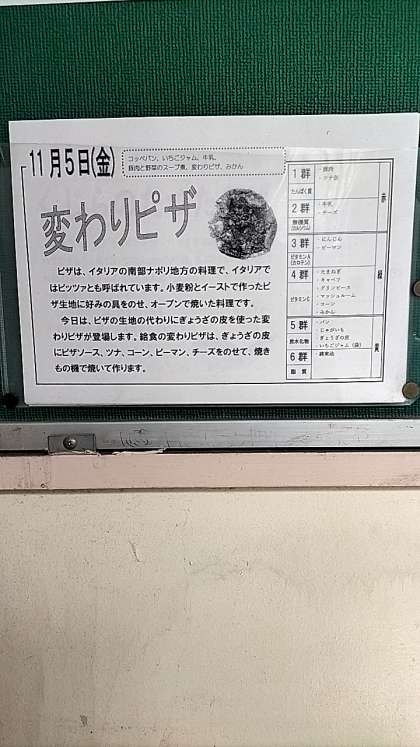 11月5日(金)
コッペパン、いちごジャム、牛乳、
豚肉と野菜のスープ煮、変わりピザ、みかん
変わりピザ
ピザは、イタリアの南部ナポリ地方の料理で、イタリアで
はピッツァとも呼ばれています。小麦粉とイーストで作ったピ
ザ生地に好みの具をのせ、オーブンで焼いた料理です。
今日は、ピザの生地の代わりにぎょうざの皮を使った変
わりピザが登場します。給食の変わりピザは、ぎょうざの皮
にピザソース、ツナ、コーン、ピーマン、チーズをのせて、焼き
もの機で焼いて作ります。
1群
たんぱく質
・豚肉
・ツナ缶
赤
2群
無機質
(カルシウム)
・牛乳
・チーズ
3群
ビタミンA
(カロテン)
・にんじん
・ピーマン
緑
4群
ビタミンC
・たまねぎ
・キャベツ
・グリンピース
・マッシュルーム
・コーン
・みかん
5群
炭水化物
・パン
・じゃがいも
・ぎょうざの皮
・いちごジャム(袋)
黄
6群
脂質